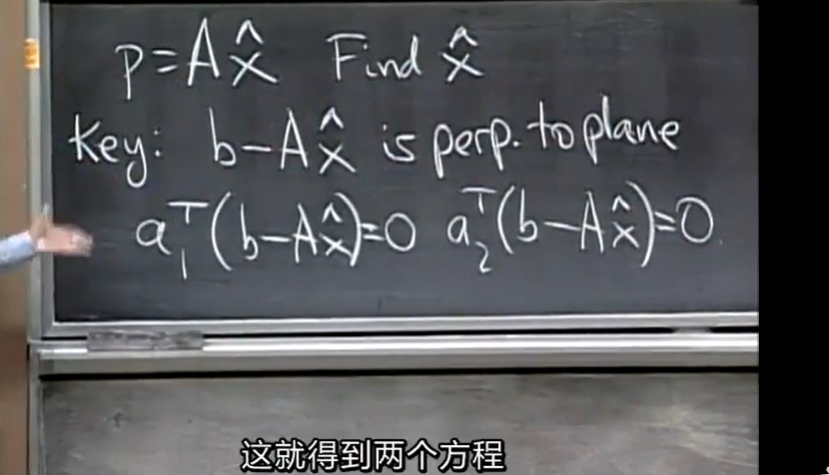 p=Ax̂ Find x̂
Key: b-Ax̂ is perp. to plane
a₁ᵀ(b-Ax̂)=0 a₂ᵀ(b-Ax̂)=0.
这就得到两个方程